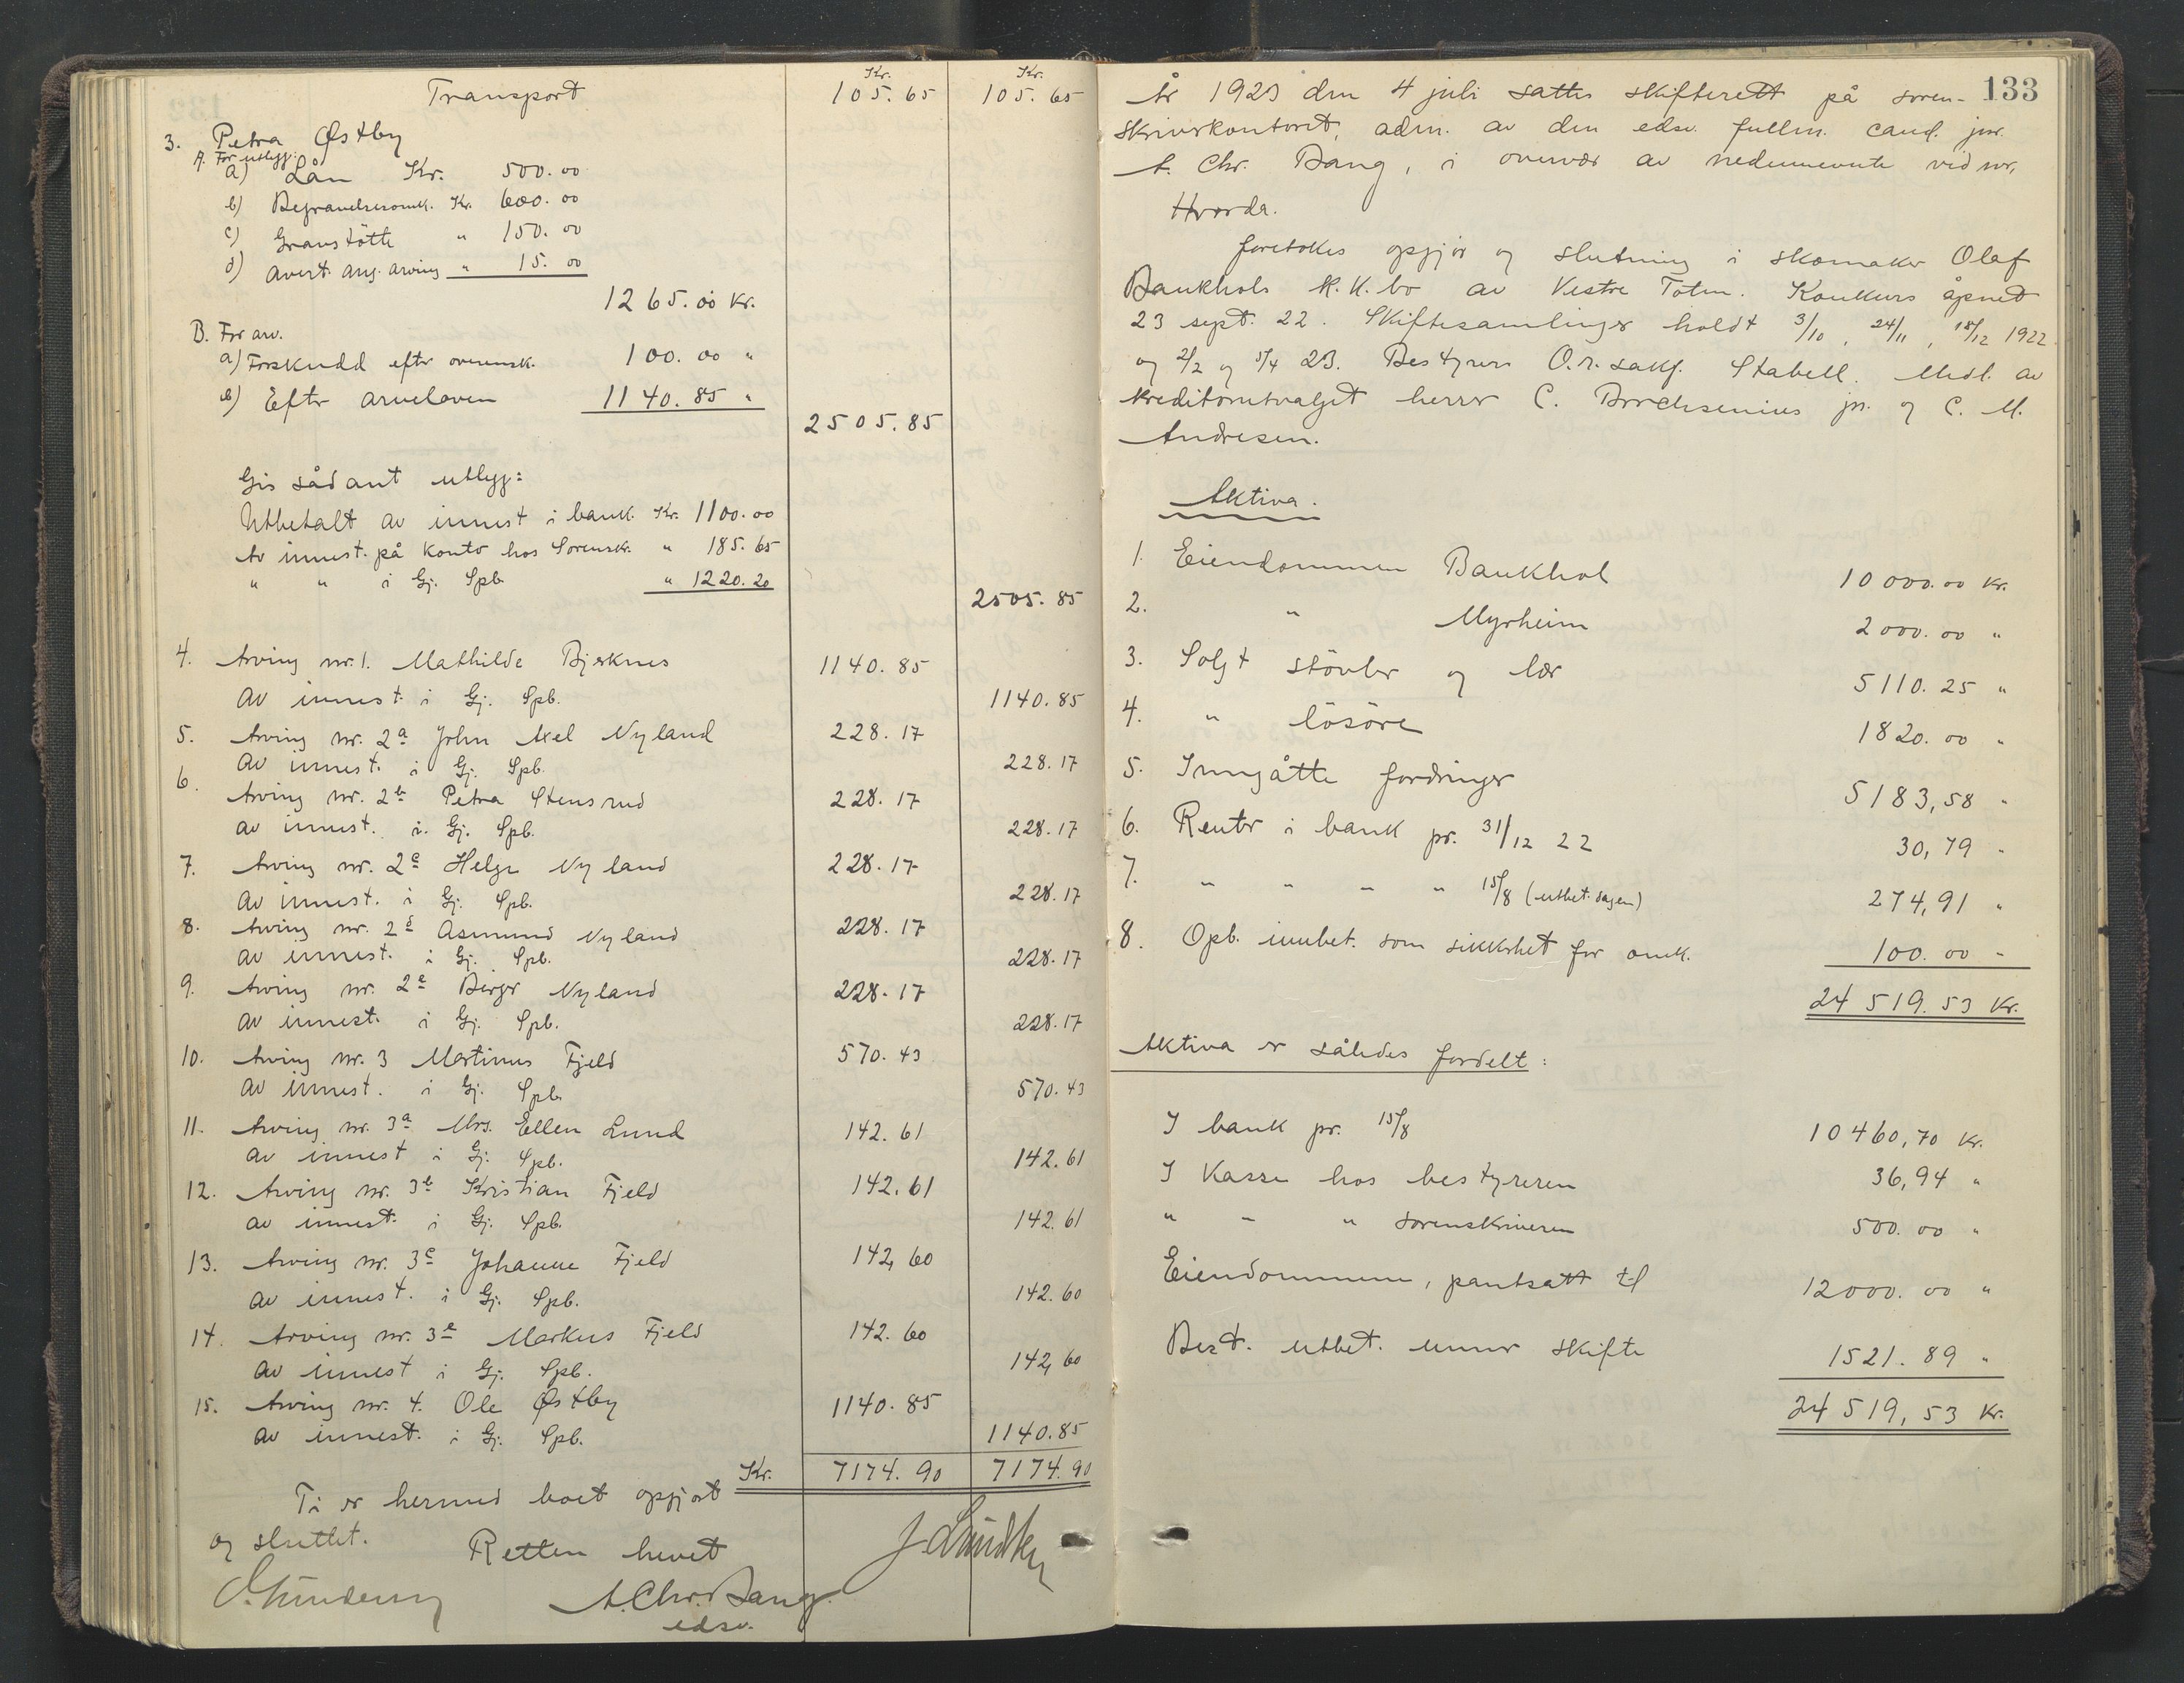 Kr. Kr.
Transport 105.65 105.65
3. Petra Østby
A. For utlegg:
a) Lån Kr. 500.00
b) Begravelsesomk. Kr. 600.00
c) Gravstötte " 150.00
d) Avert. ang. arving " 15.00
1265.00 Kr.
B. For arv.
a) Forskudd efter overensk. 100.00 "
b) Efter arveloven 1140.85 "
2505.85
Gis sådant utlegg:
Utbetalt av innest i bank. Kr. 1100.00
Av innest. på konto hos Sorensk. " 185.65
" " i Gj. Spb. " 1220.20
2505.85
4. Arving nr. 1. Mathilde Bjerknes 1140.85
av innest. i Gj. Spb. 1140.85
5. Arving nr. 2a John Axel Nyland 228.17
av innest. i Gj. Spb. 228.17
6. Arving nr. 2b Petra Stensrud 228.17
av innest. i. Gj. Spb. 228.17
7. Arving nr. 2c Helge Nyland 228.17
av innest. i Gj. Spb. 228.17
8. Arving nr. 2d Asmund Nyland 228.17
av innest. i Gj. Spb. 228.17
9. Arving nr. 2e Birger Nyland 228.17
av innest. i Gj. Spb. 228.17
10. Arving nr. 3 Martinus Fjeld 570.43
av innest. i Gj. Spb. 570.43
11. Arving nr. 3a Mrs. Ellen Lund 142.61
av innest i Gj. Spb. 142.61
12. Arving nr. 3b Kristian Fjeld 142.61
av innest. i Gj. Spb. 142.61
13. Arving nr. 3c Johanne Fjeld 142,60
av innest. i Gj. Spb. 142.60
14. Arving nr. 3e Markus Fjeld 142.60
av innest i Gj. Spb. 142,60
15. Arving nr. 4. Ole Østby 1140.85
av innest. i Gj. Spb. 1140.85
Kr. 7174.90 7174.90
Ti er hermed boet opgjort
og sluttet. Retten hevet
A. Chr. Bang.
edsv.
133
År 1923 den 4 juli sattes skifterett på soren-
skriverkontoret, adm. av den edsv. fullm. cand. jur.
A. Chr. Bang, i overvær av nedennevnte vidner,
Hvorda.
foretokes opgjör og slutning i skomaker Olaf
Baukhols K.K.bo av Vestre Toten. Konkurs åpnet
23 sept. 22. Skiftesamlinger holdt 3/10, 24/11, 18/12 1922
og 2/2 og 5/4 23. Bestyrer O.r.sakf. Stabell. Medl. av
kreditorutvalget herrer C. Borchsenius jr. og C. M.
Andresen.
Aktiva.
1. Eiendommen Baukhol 10000.00 Kr.
2. " Myrheim 2000.00 "
3. Solgt stövler og lær 5110.25 "
4. " lösöre 1820.00 "
5. Inngåtte fordringer 5183,58 "
6. Renter i bank pr. 31/12 22 30,79 "
7. " " " " 15/8 (utbet.dagen) 274,91 "
8. Opb. innbet. som sikkerhet for omk. 100.00 "
24519.53 Kr.
Aktiva er således fordelt:
I bank pr. 15/8 10460,70 Kr.
I Kasse hos bestyreren 36,94 "
" " " sorenskriveren 500.00 "
Eiendommene, pantsatt til 12000.00 "
Best. utbet. under skifte 1521.89 "
24519,53 Kr.